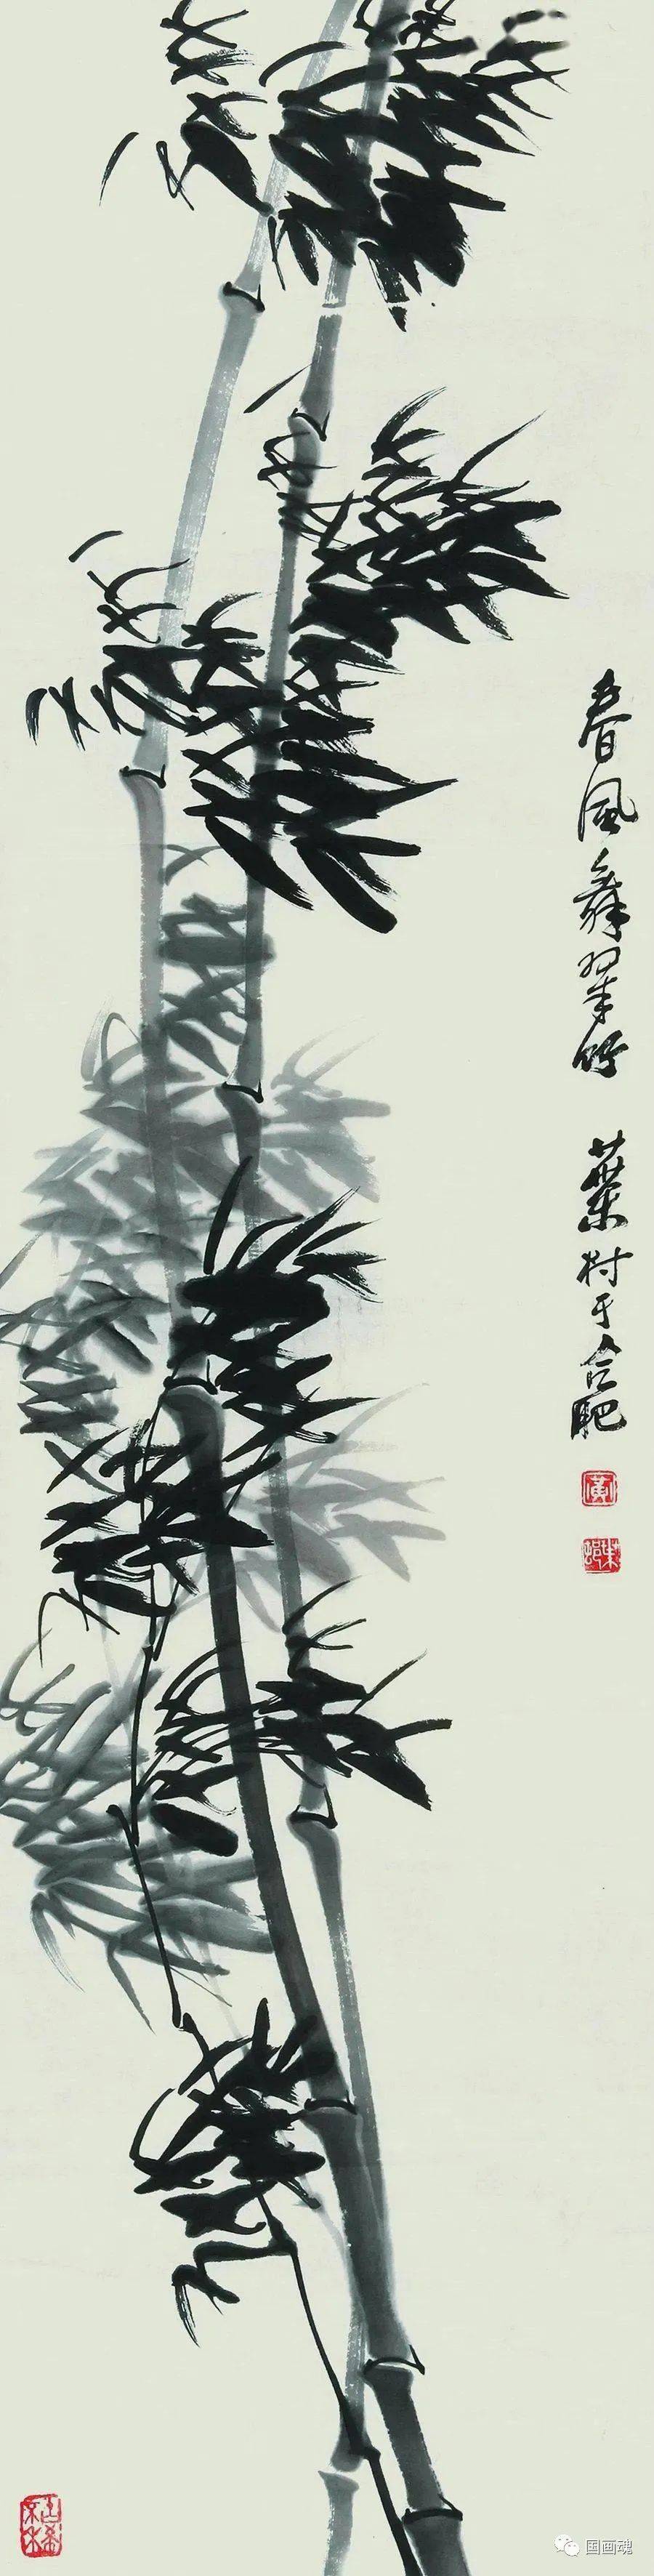 春風舞翠竹 葉村于合肥
黃
国画魂